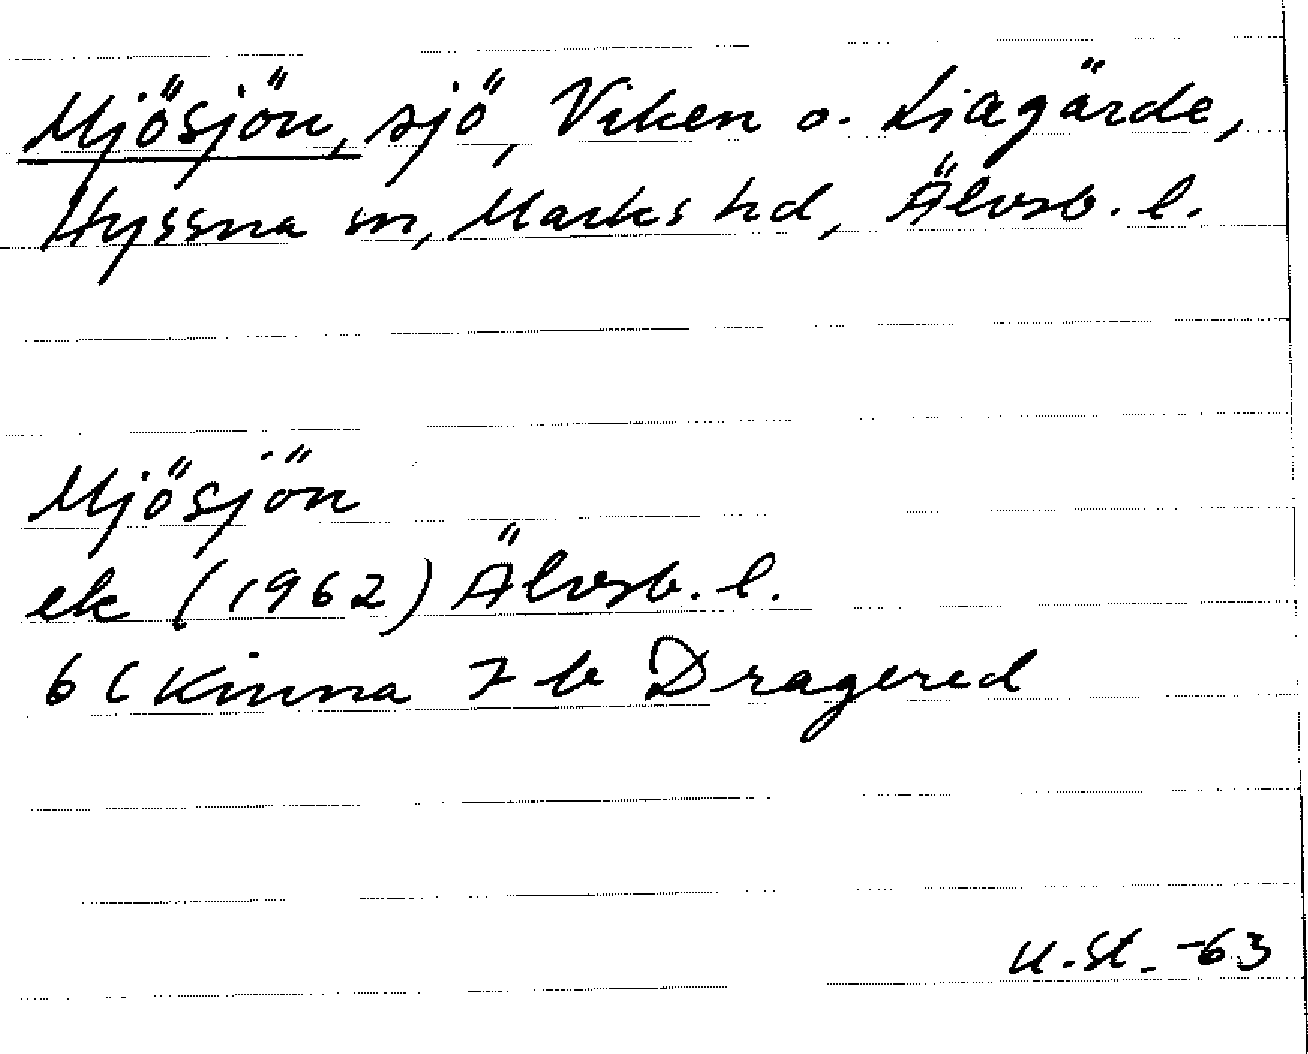 Mjösjön, sjö, Viken o. Liagärde,
Hyssna sn, Marks hd, Älvsb. l.
Mjösjön
ek (1962) Älvsb. l.
6 C Kinna 7 b Dragered
U.St. -63